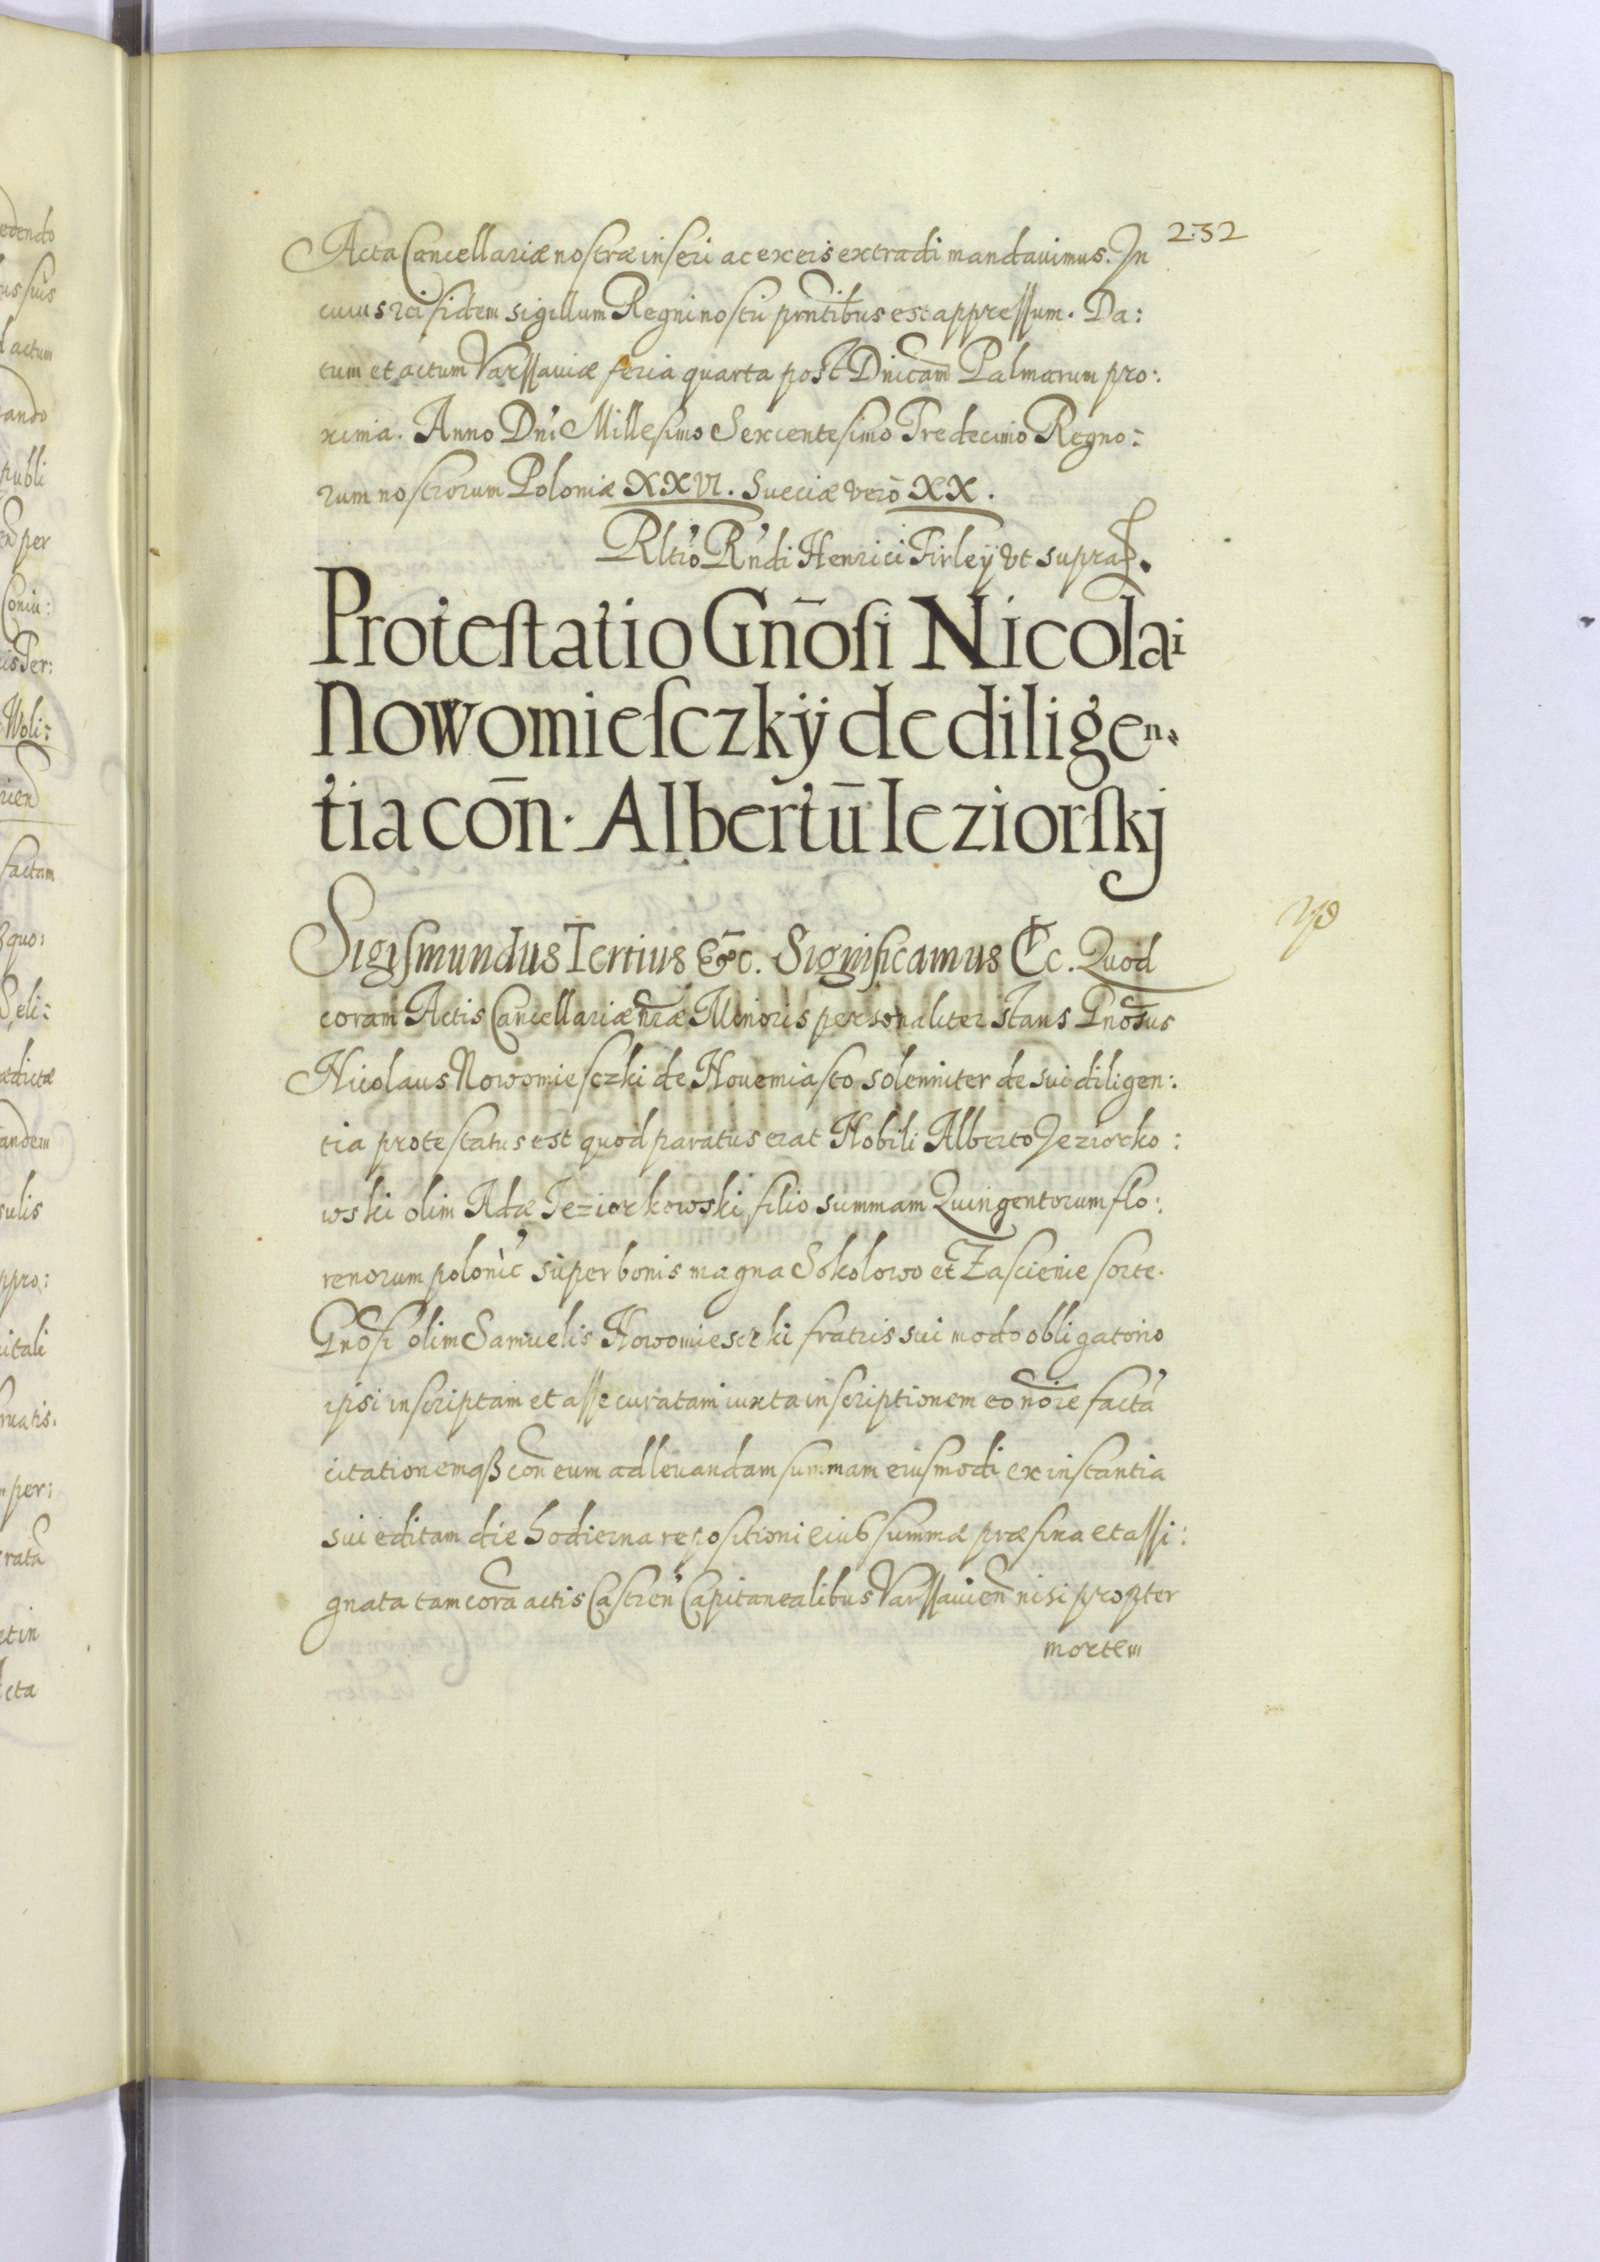 232
Acta Cancellariæ nostræ inseri ac ex eis extradi mandavimus. In
cuius rei fidem sigillum Regni nostri pñtibus est appressum. Da:
tum et actum Varssaviæ feria quarta post Dnicam̃ Palmarum pro:
xima. Anno Dni Millesimo Sexcentesimo Tredecimo Regno:
rum nostrorum Poloniæ XXVI. Sueciæ verõ XX.
Rltio Rndi Henrici Firleÿ vt supra.
Protestatio Gñosi Nicolai
Nowomiesczkÿ de diligen
tia cõn. Albertũ Ieziorskj
Sigismundus Tertius &c. Significamus &c. Quod
coram Actis Cancellariæ nræ Minoris personaliter stans Gnosus
Nicolaus Nowomiesczki de Novemiasto solenniter de sui diligen:
tia protestatus est quod paratus erat Nobili Alberto Jeziorko:
wski olim Adæ Jeziorkowski filio summam Quingentorum flo:
renorum polonic super bonis magna Sokolowo et Zascienie sorte
Gnosi olim Samuelis Nowomiesczki fratris sui modo obligatorio
ipsi inscriptam et assecuratam iuxta inscriptionem eo noie facta
citationemqꝫ con eum ad levandam summam eiusmodi ex instantia
sui editam die hodierna repositioni eius summæ præfixa et assi:
gnata tam cora actis Castren Capitanealibus Varssavien nisi propter
mortem